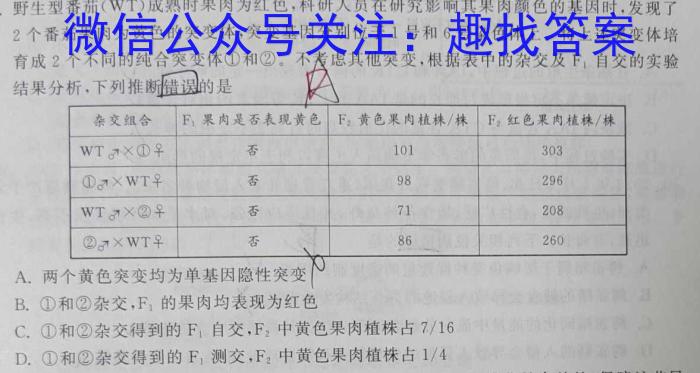 野生型番茄(WT)成熟时果肉为红色,科研人员在研究影响其果肉颜色的基因时,发现了
微信公众号关注：趣找答案
2个番茄
育成2个不同的纯合突变体①和②。不考虑其他突变,根据表中的杂交及F₁自交的实验
结果分析,下列推断错误的是
杂交组合 F₁果肉是否表现黄色 F₂黄色果肉植株/株 F₂红色果肉植株/株
WT♂×①♀ 否 101 303
①♂×WT♀ 否 98 296
WT♂×②♀ 否 71 208
②♂×WT♀ 否 86 260
A. 两个黄色突变均为单基因隐性突变
B. ①和②杂交,F₁的果肉均表现为红色
C. ①和②杂交得到的F₁自交,F₂中黄色果肉植株占7/16
D. ①和②杂交得到的F₁测交,F₂中黄色果肉植株占1/4